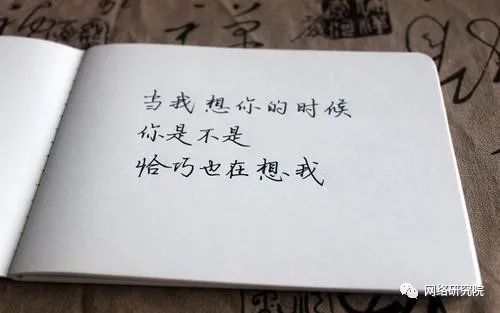 当我想你的时候
你是不是
恰巧也在想我
网络研究院